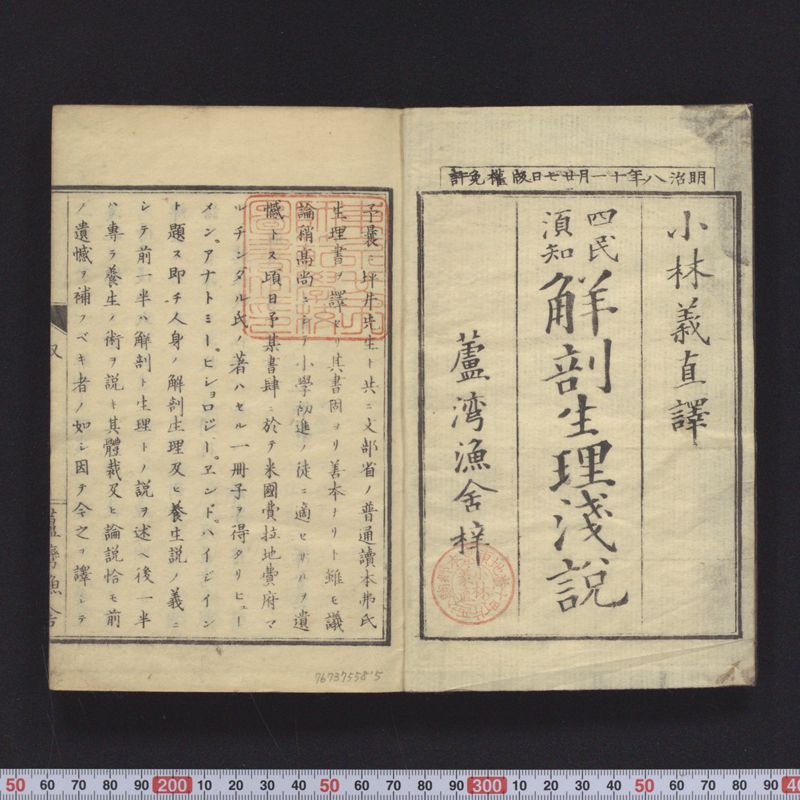 明治八年十一月廿七日版權免許
小林義直譯
四民
須知
解剖生理淺說
蘆湾漁舍梓
予曩ニ坪井先生ト共ニ文部省ノ普通讀本弗氏
生理書ヲ譯セリ其書固ヨリ善本ナリト雖モ議
論稍高尚ニシテ小學初進ノ徒ニ適セサルヲ遺
憾トス頃日予某書肆ニ於テ米國費拉地費府マ
ルチンダル氏ノ著ハセル一冊子ヲ得タリヒュー
メン、アナトミー、ヒショロジー、エンド、ハイジイン
ト題ス即チ人身ノ解剖生理及ヒ養生説ノ義ニ
シテ前一半ハ解剖ト生理トノ説ヲ述ヘ後一半
ハ專ラ養生ノ術ヲ説キ其體裁及ヒ論説恰モ前
ノ遺憾ヲ補フベキ者ノ如シ因テ今之ヲ譯シテ
76737558'5
50 60 70 80 90 200 10 20 30 40 50 60 70 80 90 300 10 20 30 40 50 60 70 80 90